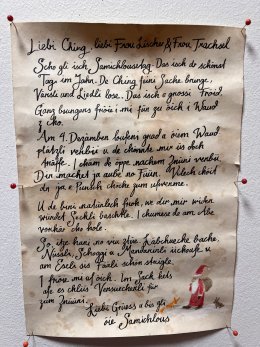 Liebi Ching, liebi Frou Lüscher & Frou Trachsel
Scho gli isch Samichloustag. Das isch dr schönst
Tag im Jahr. De Ching feini Sache bringe,
Värsli und Liedli lose. Das isch e grossi Froid.
Ganz bsungers fröie i mi für zu öich i Waud
z cho.
Am 4. Dezämber loufemer grad a öiem Waud
platzli verbii u de chönnte mir üs doch
träffe. I chume de öppe nachem Znüni verbii.
Dir machet ja aube no Füür. Vilech cheit
dr ja e Punsch chäche zum ufwerme.
U de bini natürlech froh, we dir mir würdet
Säckli bastle. I chume se am Abe
vorhär cho hole.
So, itze hani no viu z tüe. Läbchueche bache,
Nussli, Schoggi u Mandarindli iichoufe u
am Esel sis Fäli schön strigle.
I fröie mi uf öich. Im Sack hets
de es chliis Versuecherli für
zum Znüni.
Liebi Grüess u bis gli
öie Samichlous